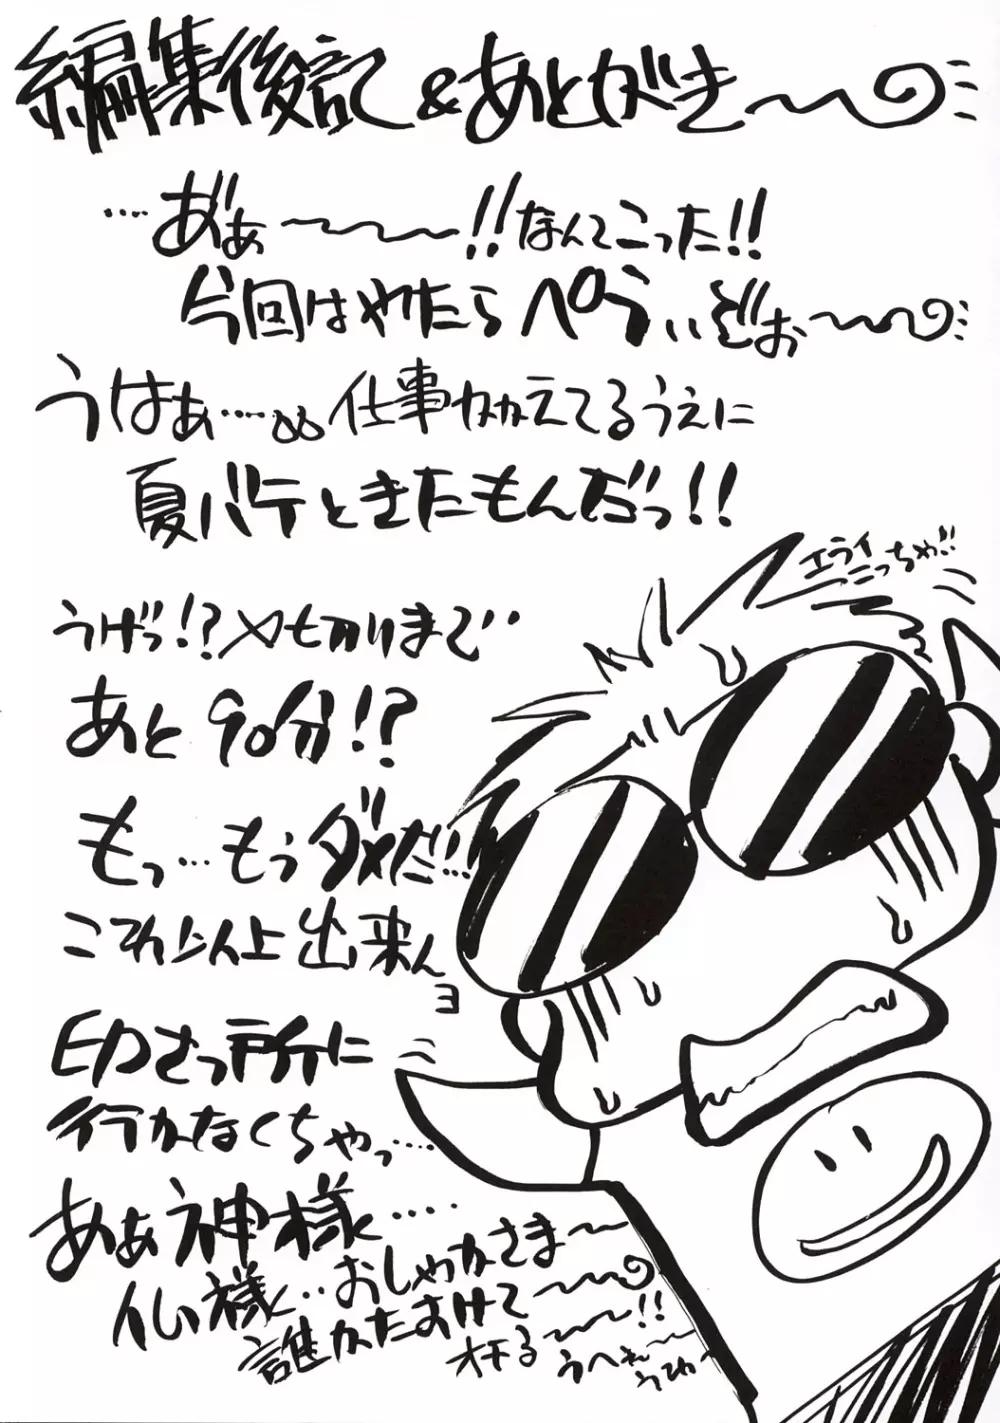 編集後記&あとがき〜〜
‥‥あ゛ぁ〜〜〜!!なんてこった!!
今回はやたらペラいぞぉ〜〜〜
うはぁ‥‥。。仕事かかえてるうえに
夏バテときたもんだっ!!
エライ
こっちゃ!!
うげっ!?〆切りまで‥
あと90分!?
もっ…もうダメだ!!
これ以上出来ん
ヨ
印さっ所に
行かなくちゃっ‥‥
あぁ神様‥‥
仏様‥おしゃかさま〜
誰かたすけて〜〜〜
オチる〜〜!!
うへぇ〜